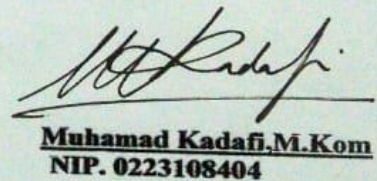 Muhamad Kadafi,M.Kom
NIP. 0223108404